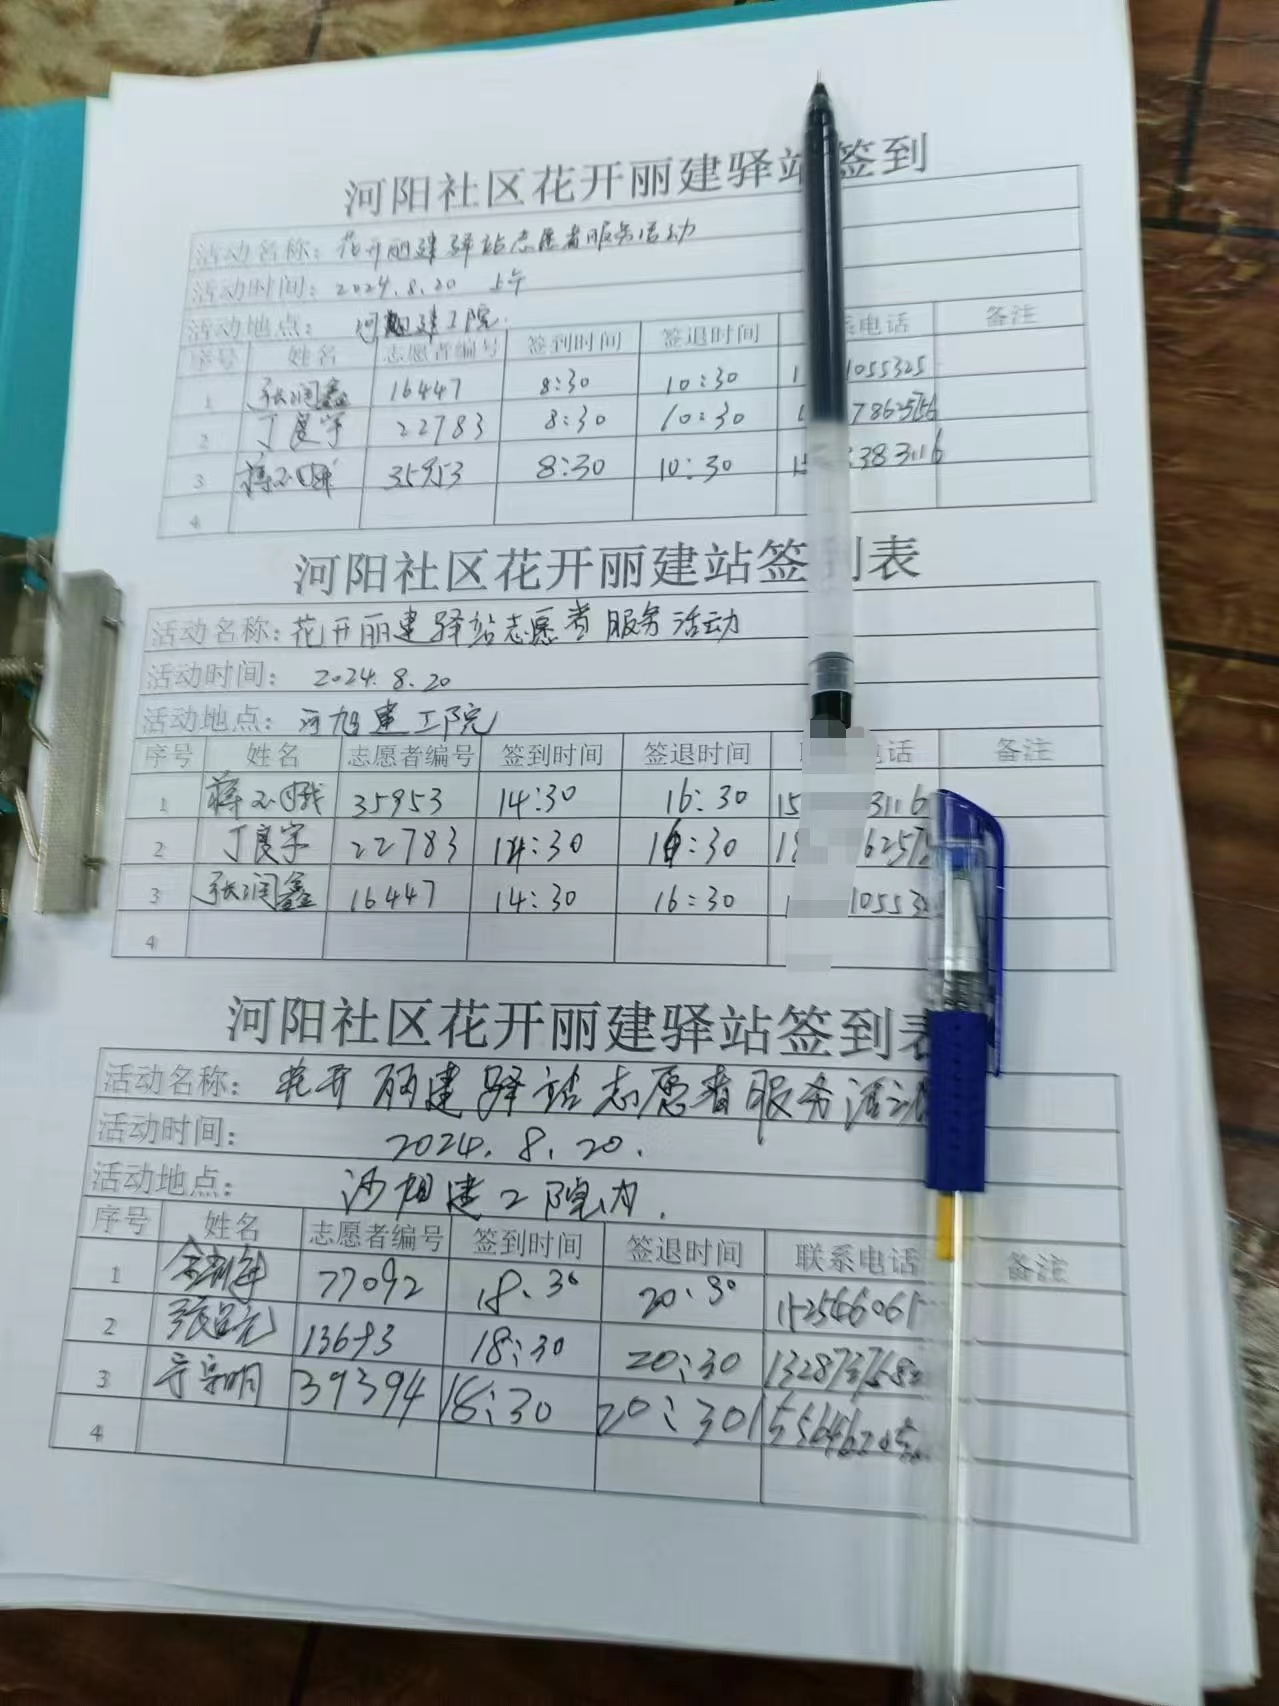 河阳社区花开丽建驿站签到
活动名称：花开丽建驿站志愿者服务活动
活动时间：2024.8.20 上午
活动地点：建工院
序号 姓名 志愿者编号 签到时间 签退时间 电话 备注
1 张润鑫 16447 8:30 10:30 1 1055325
2 丁良宇 22783 8:30 10:30
3 蒋 35953 8:30 10:30 383116
4
河阳社区花开丽建站签到表
活动名称：花开丽建驿站志愿者服务活动
活动时间：2024.8.20
活动地点：河旭建工院
序号 姓名 志愿者编号 签到时间 签退时间 电话 备注
1 蒋 35953 14:30 16:30 15 3116
2 丁良宇 22783 14:30 16:30 18 6257
3 张润鑫 16447 14:30 16:30 1 10553
4
河阳社区花开丽建驿站签到表
活动名称：花开丽建驿站志愿者服务活动
活动时间：2024.8.20.
活动地点：建工院内.
序号 姓名 志愿者编号 签到时间 签退时间 联系电话 备注
1 77092 18.30 20.30
2 13693 18:30 20:30
3 39394 18:30 20:30
4